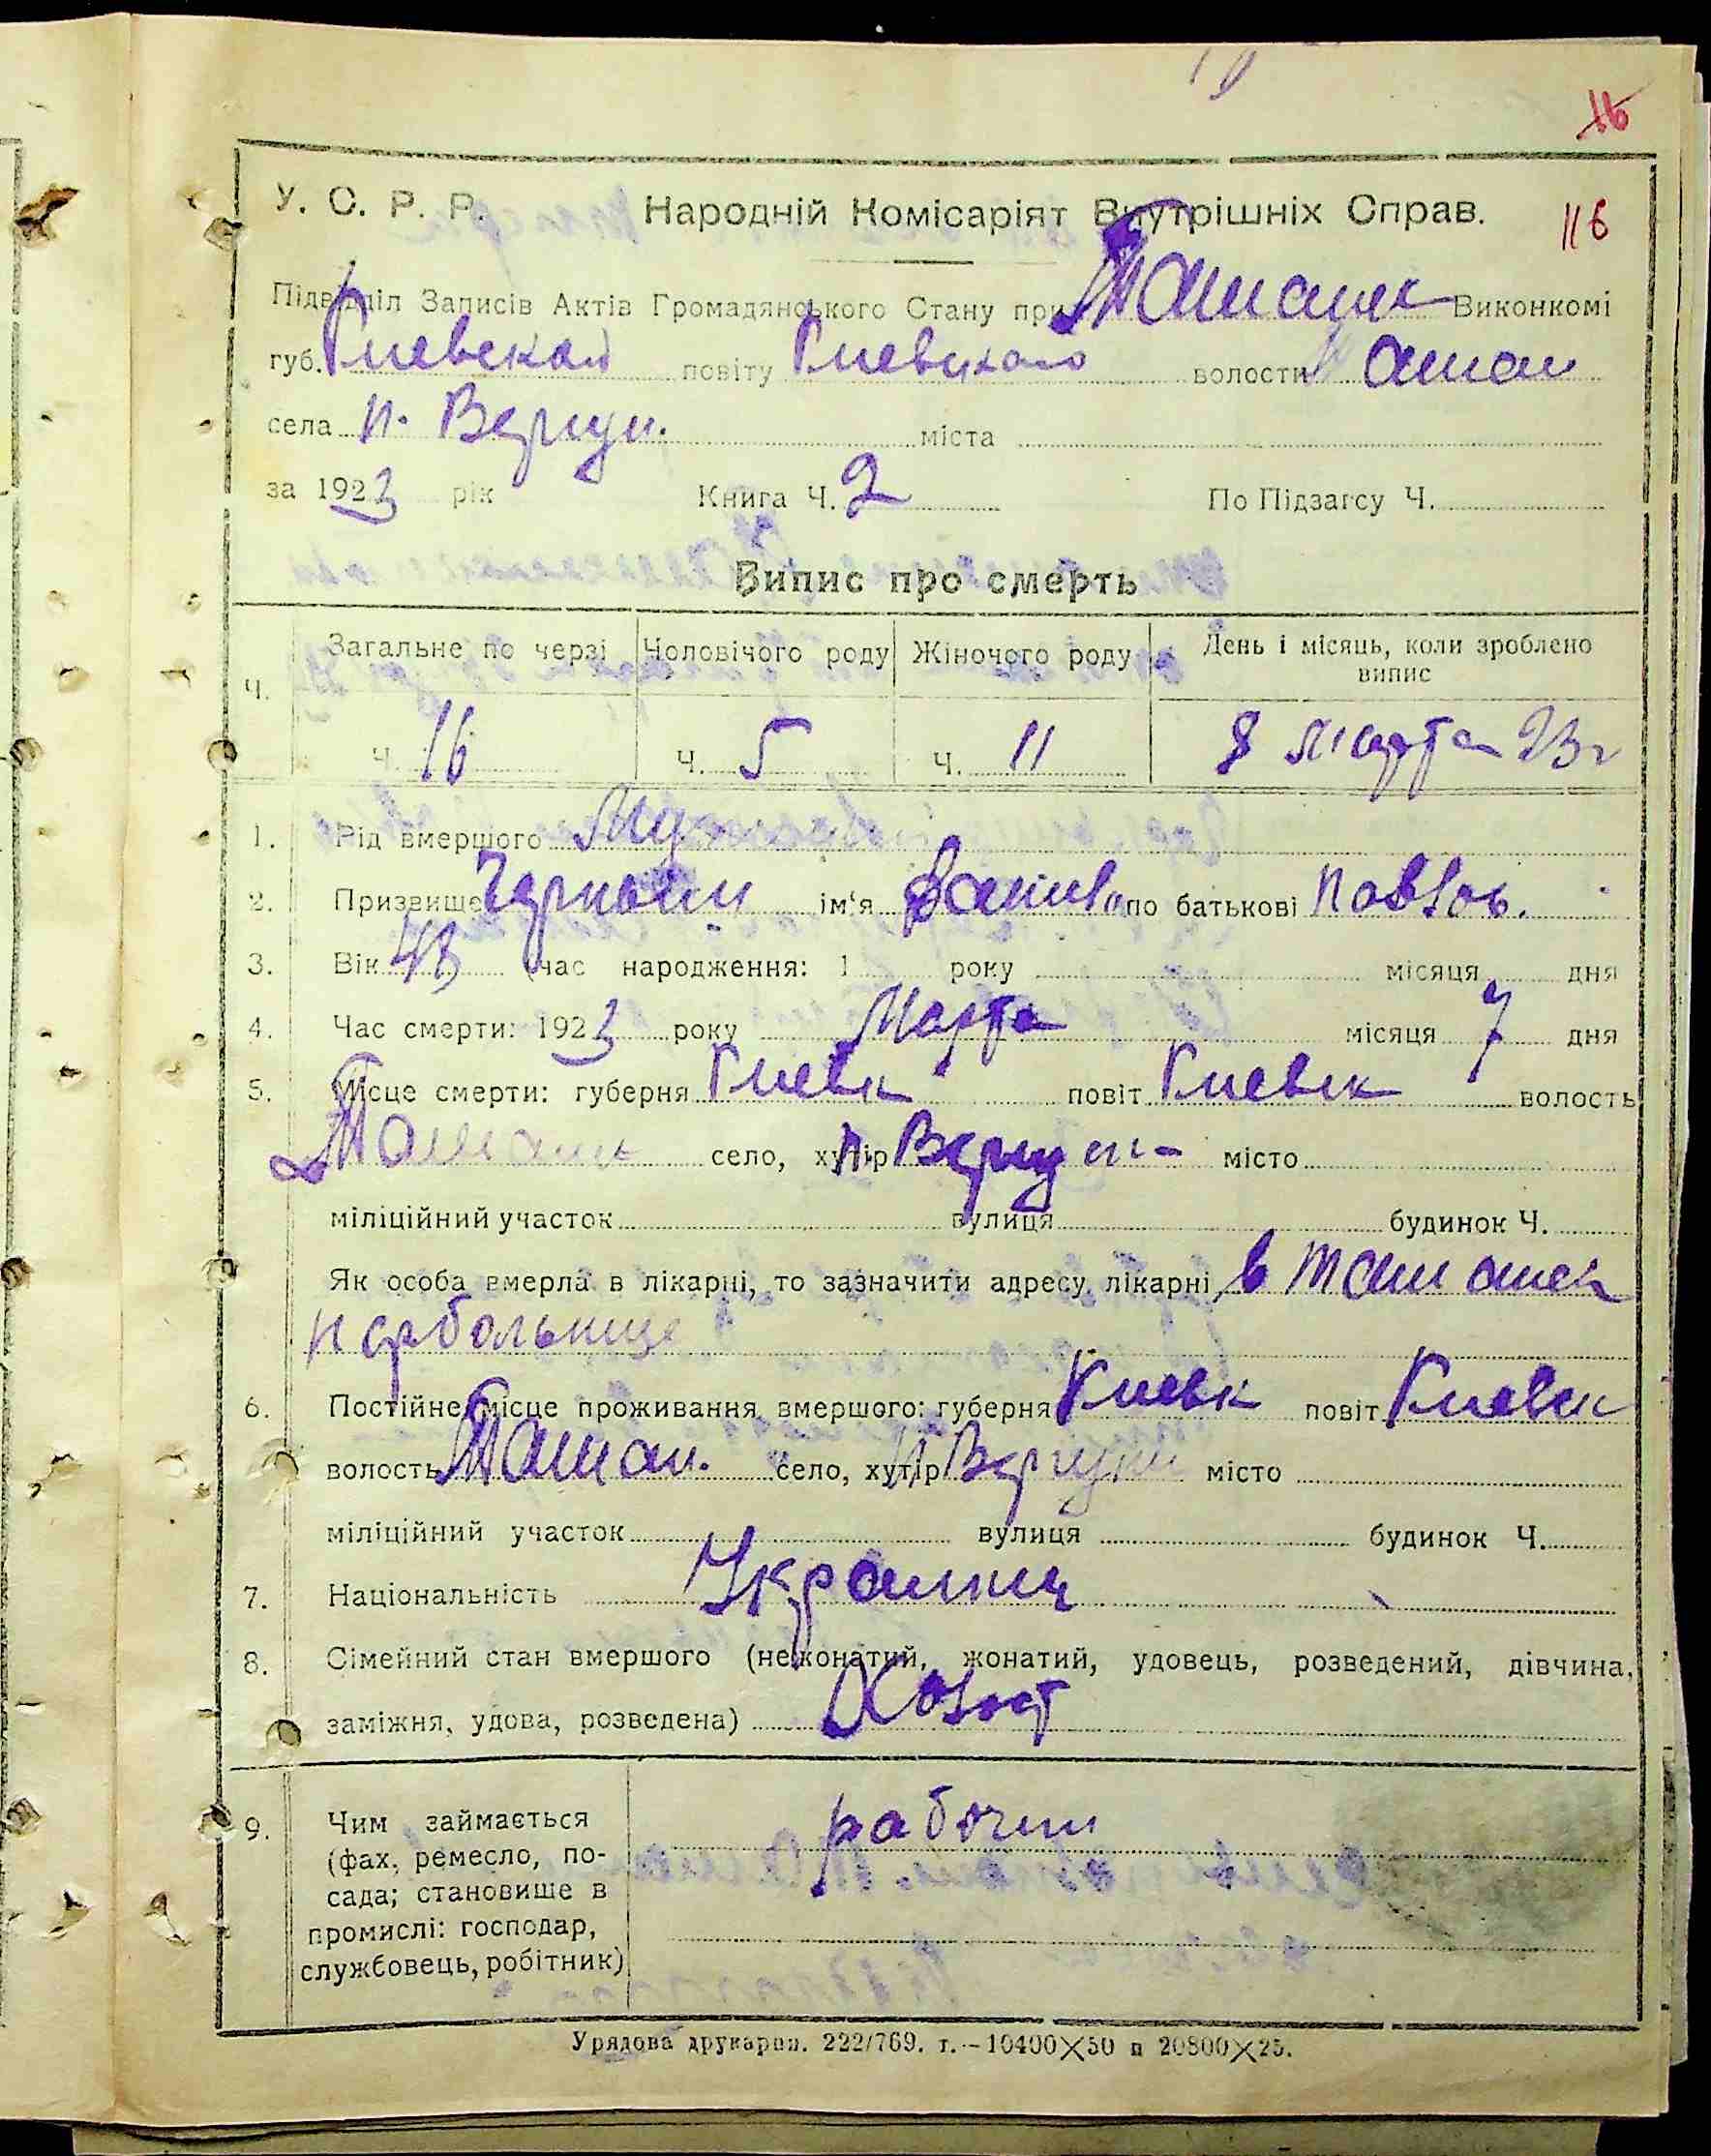 116
У. С. Р. Р. Народній Комісаріят Внутрішніх Справ.
Підвідділ Записів Актів Громадянського Стану при Виконкомі
губ. Киевской повіту Киевского волости Ташан
села міста
за 1923 рік Книга Ч. 2 По Підзагсу Ч.
Випис про смерть
Ч. Загальне по черзі Чоловічого роду Жіночого роду День і місяць, коли зроблено
випис
Ч. 16 Ч. 5 Ч. 11 8 марта 23 г
1. Рід вмершого Муж
2. Призвище ім'я по батькові Павлов.
3. Вік 43 (час народження: 1 року місяця дня
4. Час смерти: 1923 року Марта місяця 7 дня
5. Місце смерти: губерня Киевск повіт Киевск волость
село, хутір місто
міліційний участок вулиця будинок Ч.
Як особа вмерла в лікарні, то зазначити адресу лікарні в
нарбольнице
6. Постійне місце проживання вмершого: губерня Киевск повіт Киевск
волость Ташан. село, хутір місто
міліційний участок вулиця будинок Ч.
7. Національність Украинец
8. Сімейний стан вмершого (нежонатий, жонатий, удовець, розведений, дівчина,
заміжня, удова, розведена) Холост
9. Чим займається рабочий
(фах, ремесло, по-
сада; становище в
промислі: господар,
службовець, робітник)
Урядова друкарня. 222/769. т.—10400×50 п 20800×25.